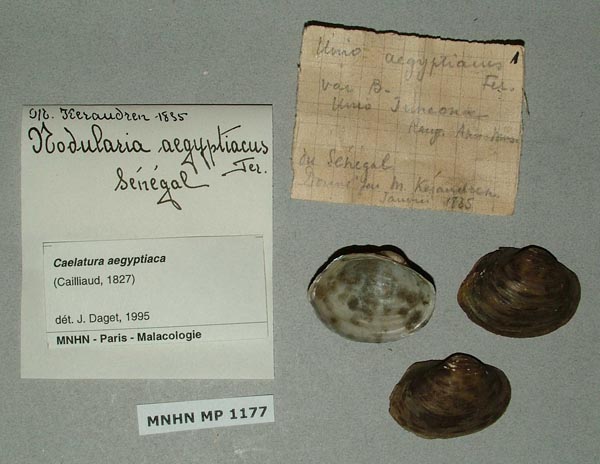 Keraudren 1835
Nodularia aegyptiacus
Fer.
Sénégal
Caelatura aegyptiaca
(Cailliaud, 1827)
dét. J. Daget, 1995
MNHN - Paris - Malacologie
MNHN MP 1177
1
Unio aegyptiacus
Fer.
var B.
Unio
Rang.
du Sénégal
Donné par M. Keraudren
Janvier 1835